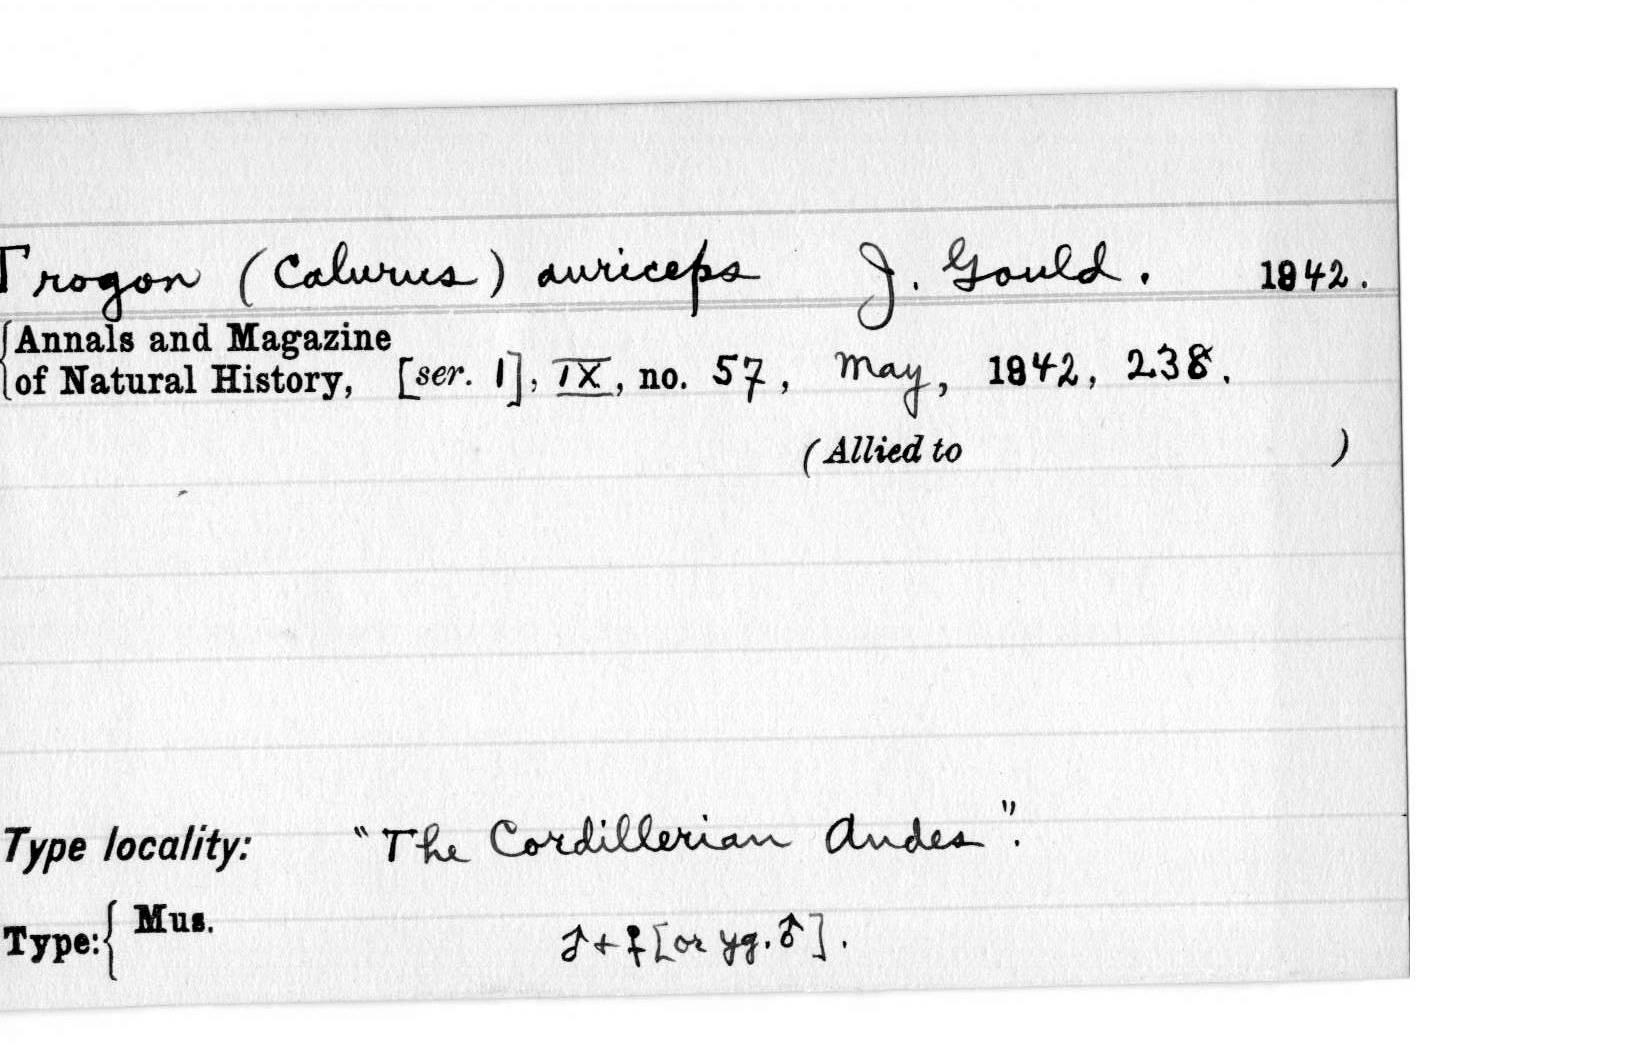 Trogon (Calurus) auriceps J. Gould. 1842.
Annals and Magazine
of Natural History, [ser. 1], IX, no. 57, May, 1842, 238.
(Allied to )
Type locality: "The Cordillerian Andes".
Type: { Mus. ♂ + ♀ [or yg. ♂].